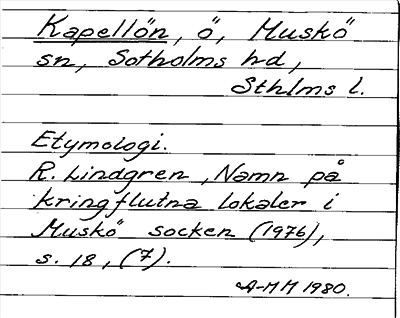 Kapellön, ö, Muskö
sn, Sotholms hd,
Sthlms l.
Etymologi.
R. Lindgren, Namn på
kringflutna lokaler i
Muskö socken (1976),
s. 18, (7).
A-MM 1980.